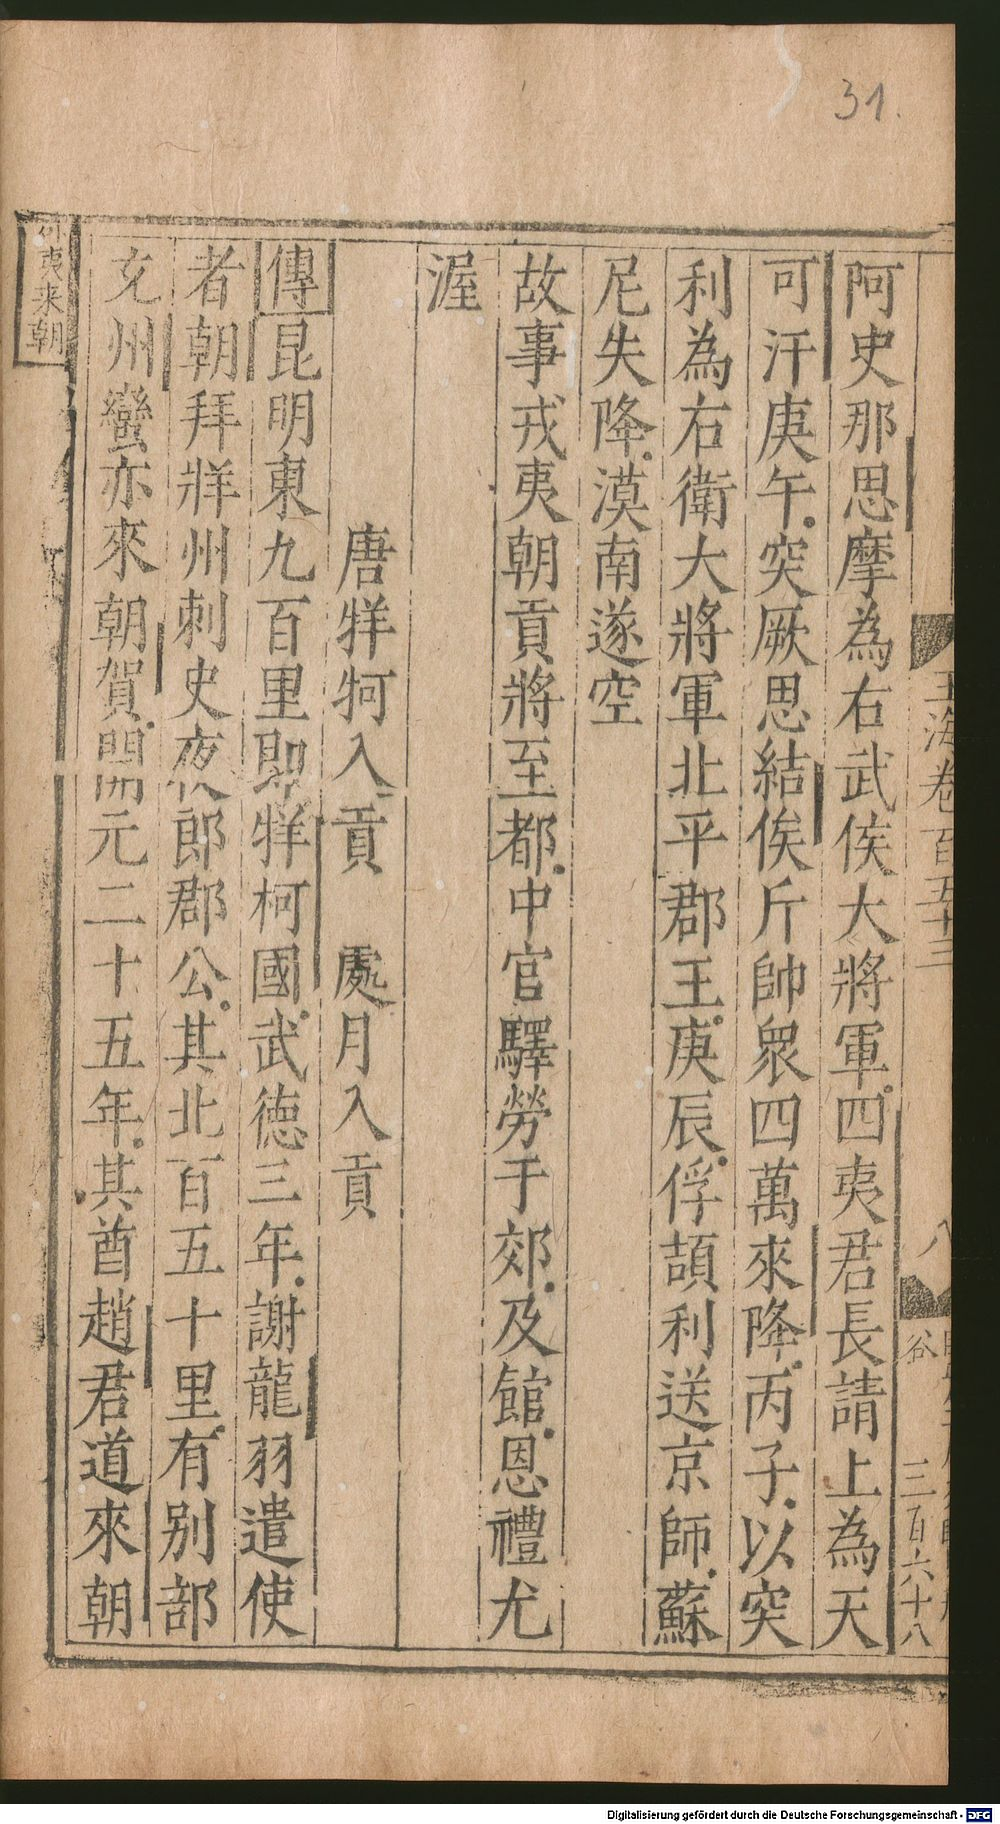 31.
玉海卷百五十三
八
谷
三百六十八
阿史那思摩為右武侯大將軍四夷君長請上為天
可汗庚午突厥思結俟斤帥衆四萬來降丙子以突
利為右衛大將軍北平郡王庚辰俘頡利送京師蘇
尼失降漠南遂空
故事戎夷朝貢將至都中官驛勞于郊及館恩禮尤
渥
唐牂牁入貢　處月入貢
傳昆明東九百里即牂柯國武德三年謝龍羽遣使
者朝拜牂州刺史夜郎郡公其北百五十里有别部
充州蠻亦來朝賀開元二十五年其酋趙君道來朝
夷来朝
Digitalisierung gefördert durch die Deutsche Forschungsgemeinschaft - DFG